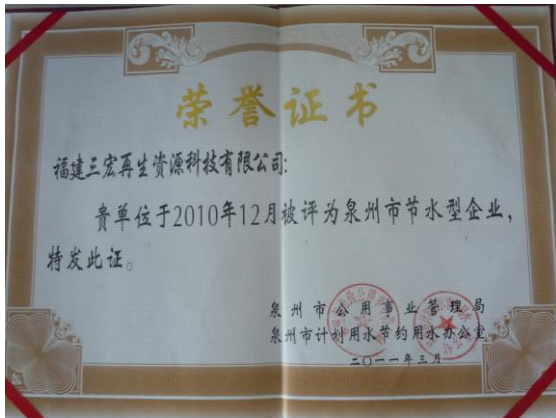 荣誉证书
福建三宏再生资源科技有限公司:
贵单位于2010年12月被评为泉州市节水型企业,
特发此证。
泉州市公用事业管理局
泉州市计划用水节约用水办公室
二〇一一年三月